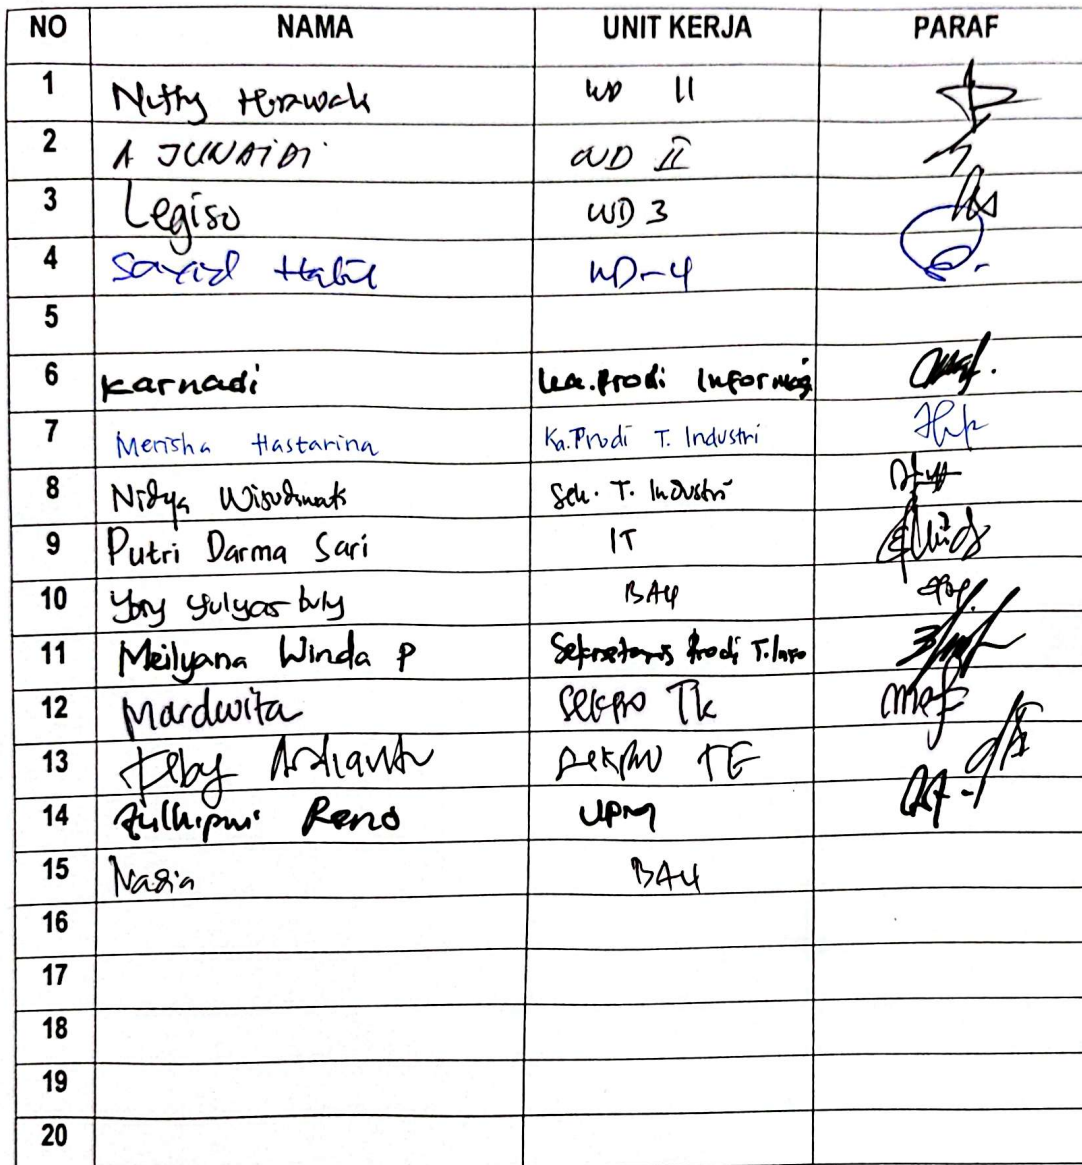 NO NAMA UNIT KERJA PARAF
1 WD II
2 A JUNAIDI WD II
3 Legiso WD 3
4 Sayid Habil WD-4
5
6 Karnadi Ka.Prodi
7 Merisha Hastarina Ka.Prodi T. Industri
8 Nidya Sek. T. Industri
9 Putri Darma Sari IT
10 BAU
11 Meilyana Winda P Sekretaris Prodi T.Info
12 Mardwita Sekpro TK
13 Feby Ardianto Sekpro TE
14 Reno UPM
15 Nazia BAU
16
17
18
19
20